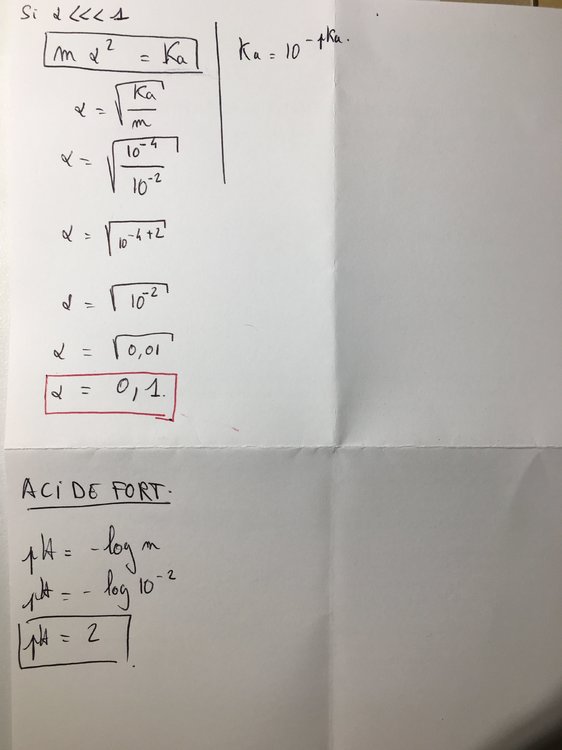 Si α <<< 1
m α² = Ka
Ka = 10⁻ᵖᴷᵃ.
α = √(Ka/m)
α = √(10⁻⁴/10⁻²)
α = √(10⁻⁴⁺²)
α = √(10⁻²)
α = √(0,01)
α = 0,1.
ACIDE FORT.
pH = -log m
pH = -log 10⁻²
pH = 2